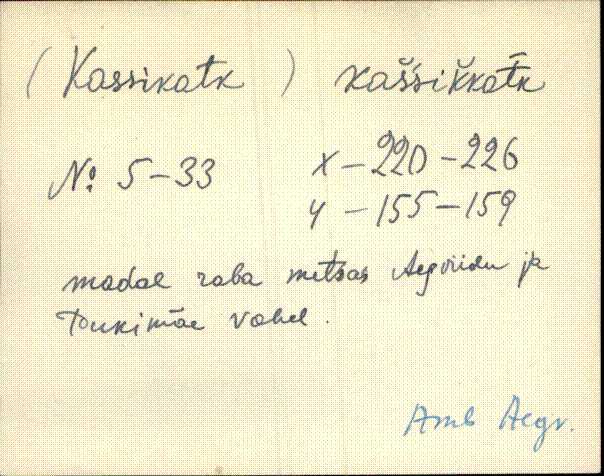 (Kassikatk) kaššikkatk
No: 5-33 x-220-226
y-155-159
madal raba metsas Aegviidu ja
Punimäe vahel.
Amb Aegv.